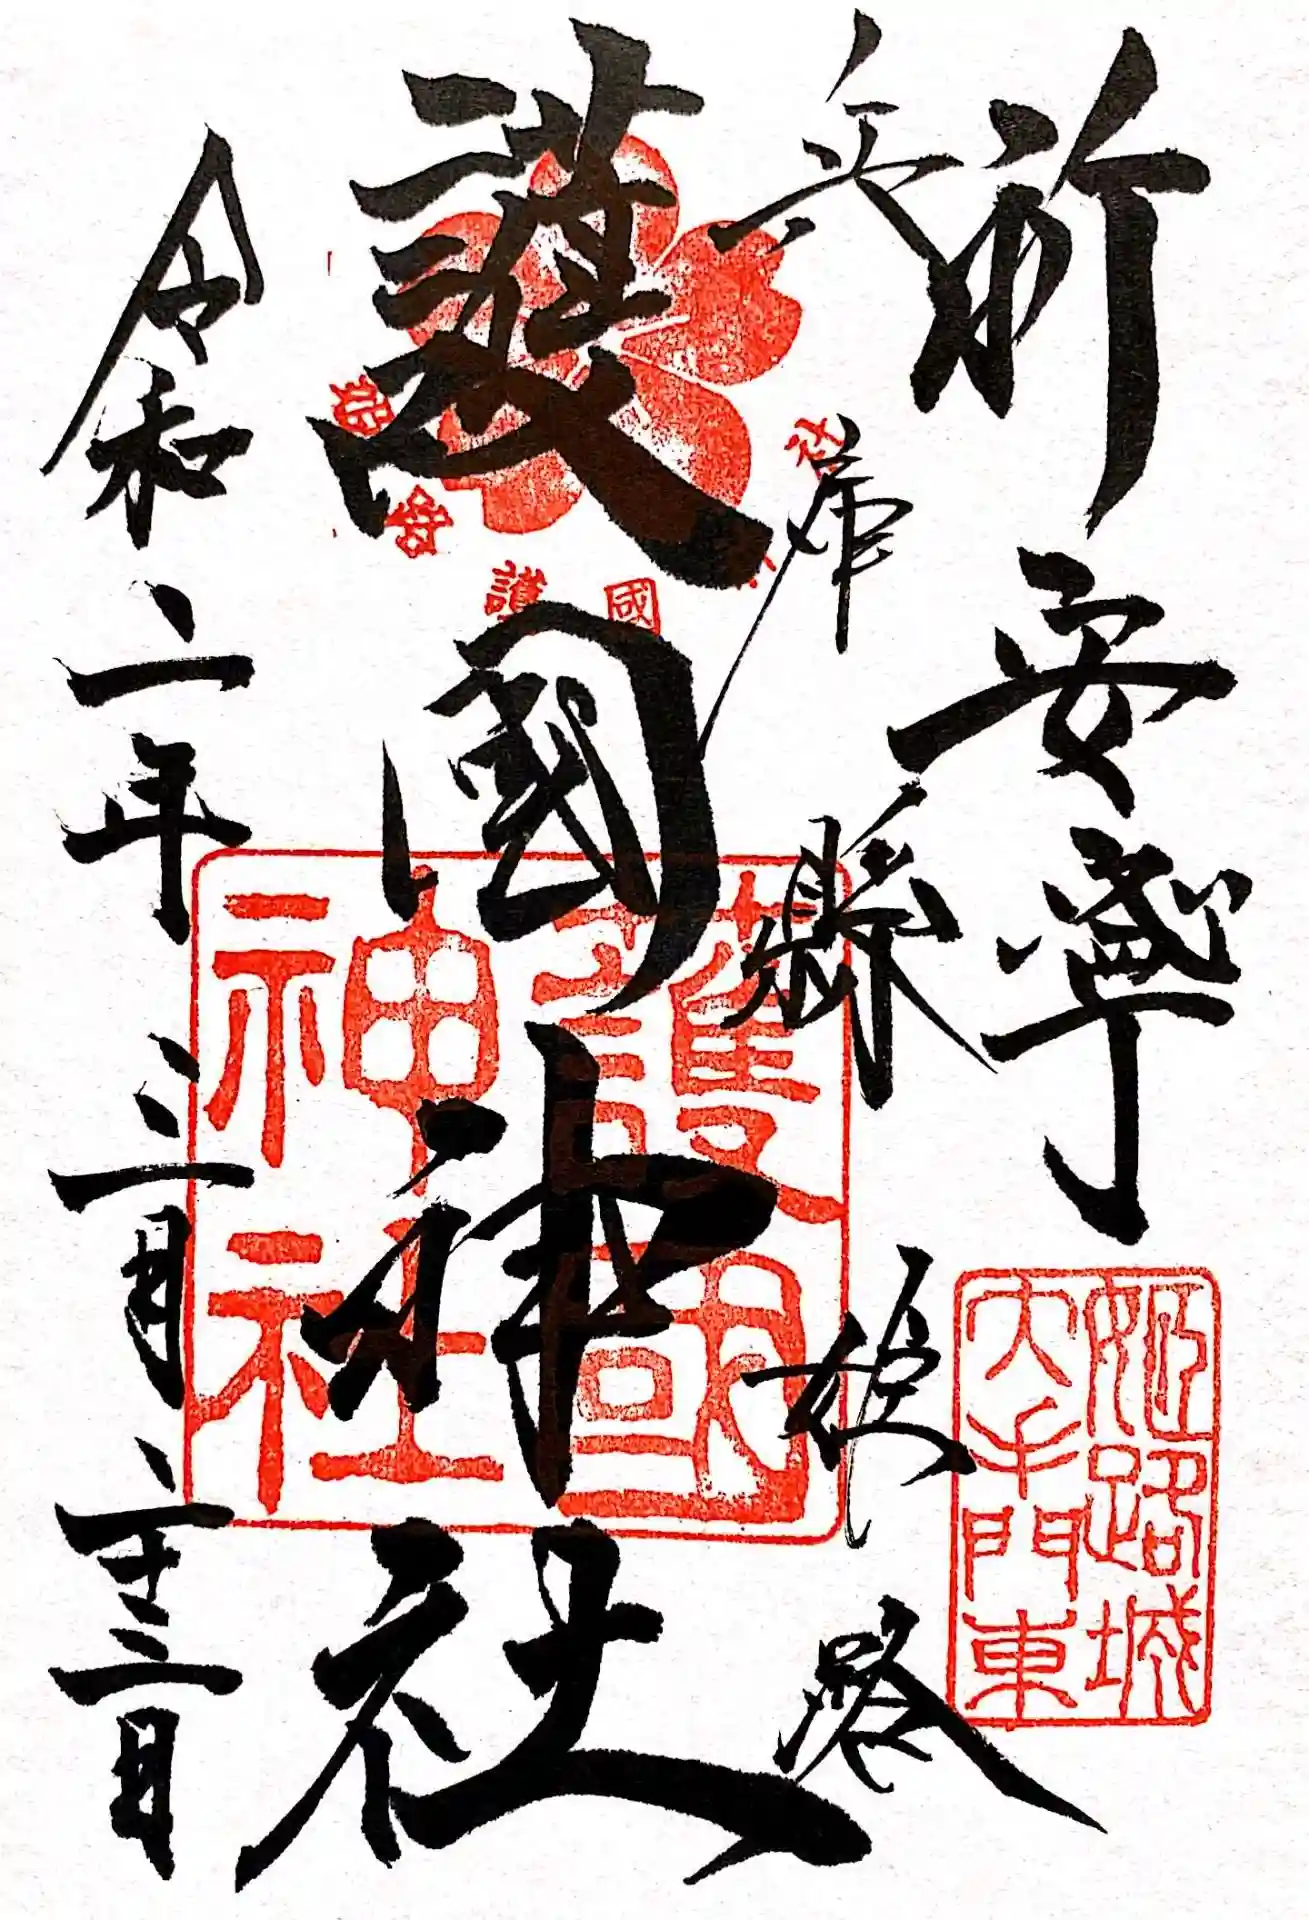 祈安寧
兵庫縣姫路
護國神社
令和二年三月二十三日
護國神社
姫路城
大手門東
護國
社